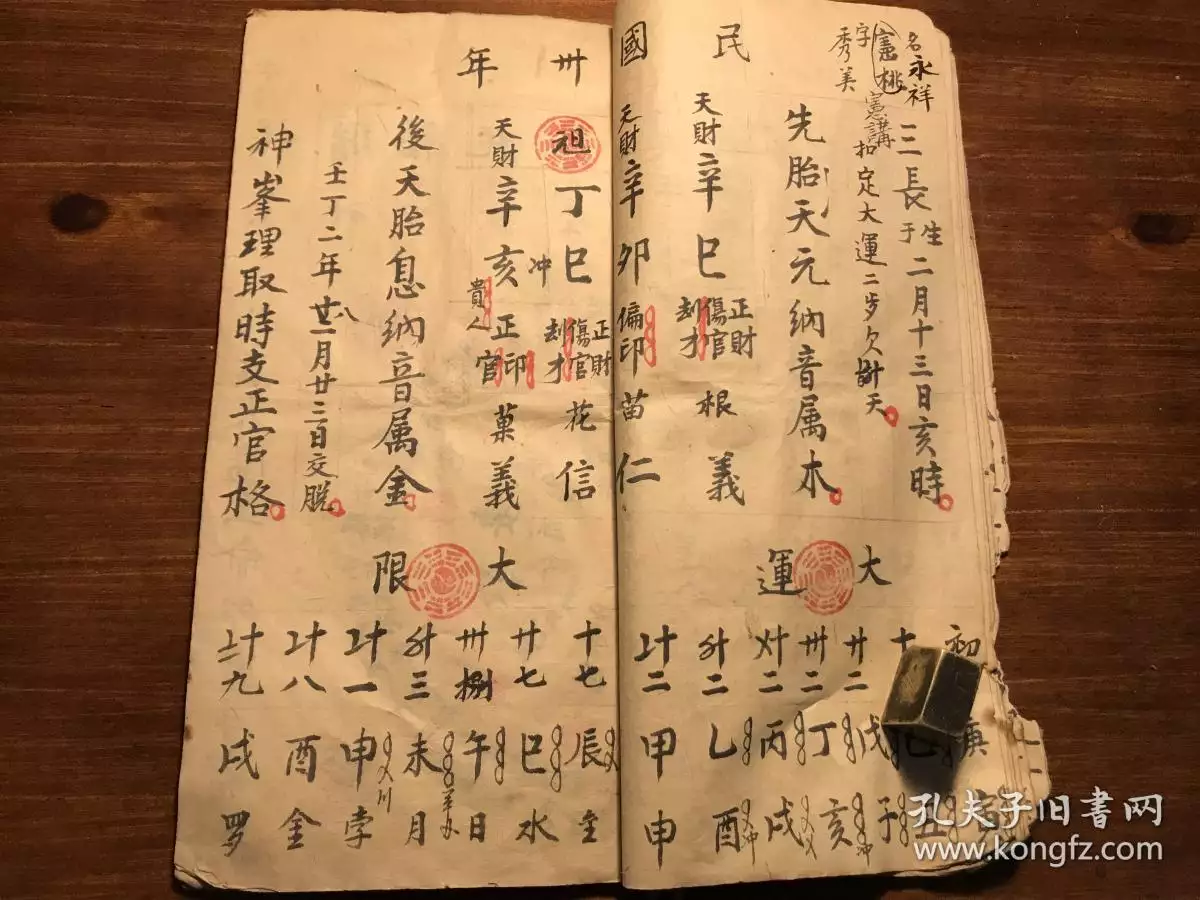 民國卅年
名永祥
憲桃
字秀美
憲講
三長生于二月十三日亥時
扣定大運二步欠天
先胎天元納音属木
天財辛巳正財傷官刦才根義
天財辛卯偏印苗仁
祖丁巳正財傷官刦才花信
冲
天財辛亥正印正官菓義
貴人
後天胎息納音属金
壬丁二年月廿三日交脱
神峯理取時支正官格
大運
初
庚
廿二戊子
卅二丁亥
〤十二丙戌
〥十二乙酉
〦十二甲申
大限
十七辰
廿七巳水
卅捌午日
〥十三未月
〦十一申孛
〦十八酉金
〧十九戌罗
孔夫子旧书网
www.kongfz.com